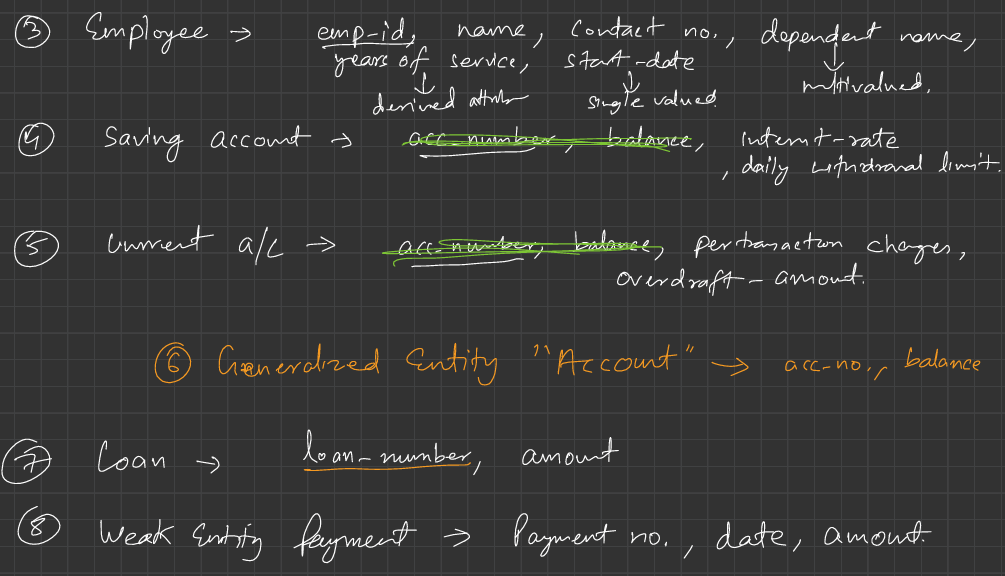 ③ Employee → emp-id, name, contact no., dependent name,
years of service, start-date
↓ derived attrib ↓ single valued ↓ multivalued.
④ Saving account → acc_number, balance, interest-rate
, daily withdrawal limit.
⑤ Current a/c → acc_number, balance, per transaction charges,
overdraft-amount.
⑥ Generalized Entity "Account" → acc-no., balance
⑦ Loan → loan-number, amount
⑧ Weak Entity Payment → Payment no., date, amount.